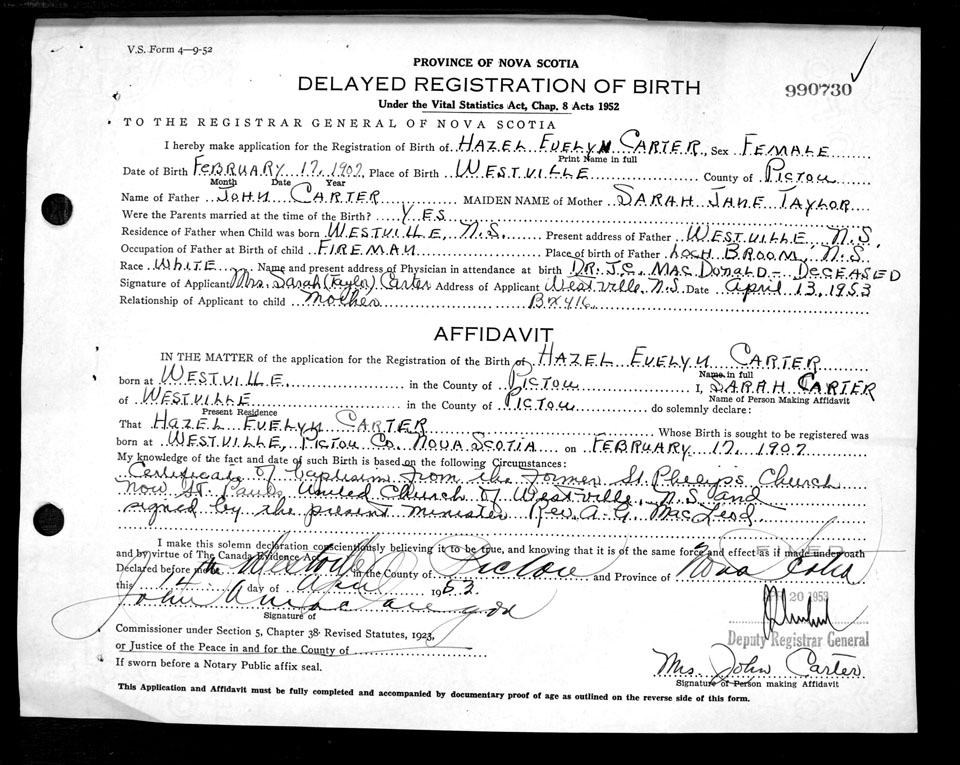 V.S. Form 4—9-52
PROVINCE OF NOVA SCOTIA
DELAYED REGISTRATION OF BIRTH
990730
Under the Vital Statistics Act, Chap. 8 Acts 1952
TO THE REGISTRAR GENERAL OF NOVA SCOTIA
I hereby make application for the Registration of Birth of HAZEL EVELYN CARTER, Sex FEMALE
Print Name in full
Date of Birth FEBRUARY 17, 1907, Place of Birth WESTVILLE County of PICTOU
Month Date Year
Name of Father JOHN CARTER MAIDEN NAME of Mother SARAH JANE TAYLOR
Were the Parents married at the time of the Birth? YES
Residence of Father when Child was born WESTVILLE, N.S. Present address of Father WESTVILLE, N.S.
Occupation of Father at Birth of child FIREMAN Place of birth of Father LOCH BROOM, N.S.
Race WHITE Name and present address of Physician in attendance at birth DR. J.C. MACDONALD - DECEASED
Signature of Applicant Mrs. Sarah (Taylor) Carter Address of Applicant Westville, N.S. Date April 13, 1953
Relationship of Applicant to child Mother Bx 416
AFFIDAVIT
IN THE MATTER of the application for the Registration of the Birth of HAZEL EVELYN CARTER
Name in full
born at WESTVILLE in the County of PICTOU I, SARAH CARTER
Name of Person Making Affidavit
of WESTVILLE in the County of PICTOU do solemnly declare:
Present Residence
That HAZEL EVELYN CARTER Whose Birth is sought to be registered was
born at WESTVILLE, PICTOU CO. NOVA SCOTIA on FEBRUARY 17, 1907
My knowledge of the fact and date of such Birth is based on the following Circumstances:
Certificate of baptism from the former St. Philip's Church
now St. Pauls United Church of Westville, N.S. and
signed by the present minister Rev. A. G. MacLeod.
I make this solemn declaration conscientiously believing it to be true, and knowing that it is of the same force and effect as if made under oath
and by virtue of The Canada Evidence Act.
Declared before me Westville in the County of Pictou and Province of Nova Scotia
this 14 day of April 1953.
20 1953
John
Signature of
Deputy Registrar General
Commissioner under Section 5, Chapter 38 Revised Statutes, 1923,
or Justice of the Peace in and for the County of
Mrs. John Carter
If sworn before a Notary Public affix seal.
Signature of Person making Affidavit
This Application and Affidavit must be fully completed and accompanied by documentary proof of age as outlined on the reverse side of this form.